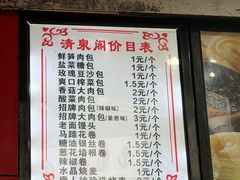 清泉阁价目表
鲜笋肉包 1元/个
盐菜糖包 1元/个
玫瑰豆沙包 1元/个
爽口榨菜包 1.5元/个
香菇大肉包 2元/个
酸菜肉包 2元/个
招牌肉包(辣椒味) 2元/个
招牌大肉包(姜葱味) 3元/个
老面馒头 1元/个
马蹄花卷 1元/个
糖油银丝卷 1.5元/个
葱花培根卷 2元/个
辣椒卷 1.5元/个
水晶烧麦 1元/个